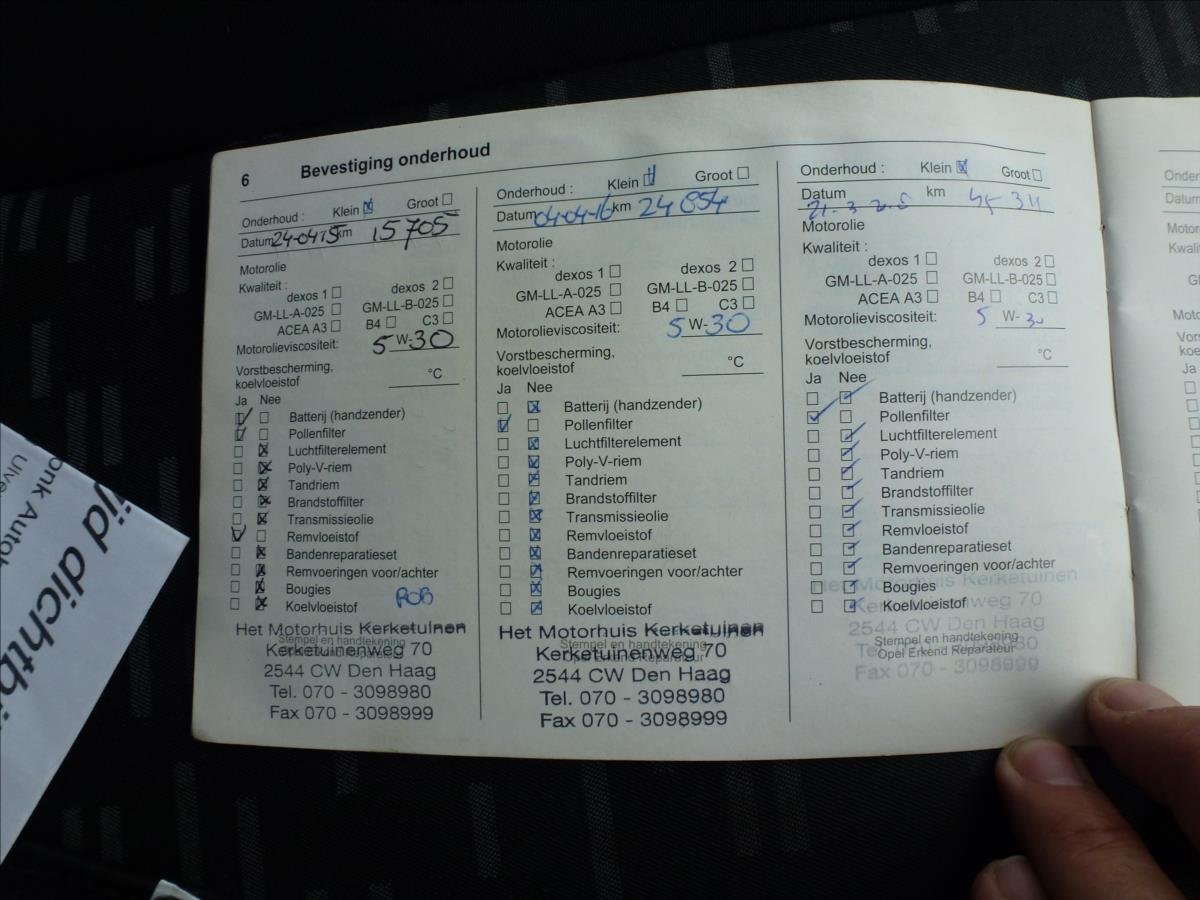 6 Bevestiging onderhoud
Onderhoud : Klein Groot
Datum 24-04-15 km 15705
Motorolie
Kwaliteit :
dexos 1 dexos 2
GM-LL-A-025 GM-LL-B-025
ACEA A3 B4 C3
Motorolieviscositeit: 5 W-30
Vorstbescherming,
koelvloeistof °C
Ja Nee
Batterij (handzender)
Pollenfilter
Luchtfilterelement
Poly-V-riem
Tandriem
Brandstoffilter
Transmissieolie
Remvloeistof
Bandenreparatieset
Remvoeringen voor/achter
Bougies
Koelvloeistof ROB
Het Motorhuis Kerketuinen
Stempel en handtekening
Kerketuinenweg 70
2544 CW Den Haag
Tel. 070 - 3098980
Fax 070 - 3098999
Onderhoud : Klein Groot
Datum 04-04-16 km 24854
Motorolie
Kwaliteit :
dexos 1 dexos 2
GM-LL-A-025 GM-LL-B-025
ACEA A3 B4 C3
Motorolieviscositeit: 5 W-30
Vorstbescherming,
koelvloeistof °C
Ja Nee
Batterij (handzender)
Pollenfilter
Luchtfilterelement
Poly-V-riem
Tandriem
Brandstoffilter
Transmissieolie
Remvloeistof
Bandenreparatieset
Remvoeringen voor/achter
Bougies
Koelvloeistof
Het Motorhuis Kerketuinen
Stempel en handtekening
Kerketuinenweg 70
Opel Erkend Reparateur
2544 CW Den Haag
Tel. 070 - 3098980
Fax 070 - 3098999
Onderhoud : Klein Groot
Datum km
Motorolie
Kwaliteit :
dexos 1 dexos 2
GM-LL-A-025 GM-LL-B-025
ACEA A3 B4 C3
Motorolieviscositeit: 5 W-30
Vorstbescherming,
koelvloeistof °C
Ja Nee
Batterij (handzender)
Pollenfilter
Luchtfilterelement
Poly-V-riem
Tandriem
Brandstoffilter
Transmissieolie
Remvloeistof
Bandenreparatieset
Remvoeringen voor/achter
Bougies
Koelvloeistof
Het Motorhuis Kerketuinen
Kerketuinenweg 70
2544 CW Den Haag
Stempel en handtekening
Opel Erkend Reparateur
Fax 070 - 3098999